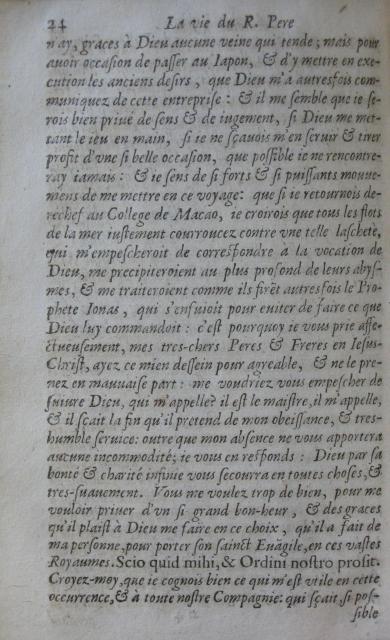 24 La vie du R. Pere
n'ay, graces à Dieu aucune veine qui tende; mais pour
auoir occasion de passer au Iapon, & d'y mettre en exe-
cution les anciens desirs, que Dieu m'a autresfois com-
muniquez de cette entreprise: & il me semble que ie se-
rois bien priué de sens & de iugement, si Dieu me met-
tant le ieu en main, si ie ne sçauois m'en seruir & tirer
profit d'vne si belle occasion, que possible ie ne rencontre-
ray iamais: & ie sens de si forts & si puissants mouue-
mens de me mettre en ce voyage: que si ie retournois de-
rechef au College de Macao, ie croirois que tous les flots
de la mer iustement courroucez contre vne telle lascheté,
qui m'empescheroit de correspondre a la vocation de
Dieu, me precipiteroient au plus profond de leurs abys-
mes, & me traiteroient comme ils firẽt autresfois le Pro-
phete Ionas, qui s'enfuioit pour euiter de faire ce que
Dieu luy commandoit: c'est pourquoy ie vous prie affe-
ctueusement, mes tres-chers Peres & Freres en Iesus-
Christ, ayez ce mien dessein pour agreable, & ne le pre-
nez en mauuaise part: me voudriez vous empescher de
suiure Dieu, qui m'appelle? il est le maistre, il m'appelle,
& il sçait la fin qu'il pretend de mon obeissance, & tres-
humble seruice: outre que mon absence ne vous apportera
aucune incommodité; ie vous en responds: Dieu par sa
bonté & charité infinie vous secourra en toutes choses, &
tres-suauement. Vous me voulez trop de bien, pour me
vouloir priuer d'vn si grand bon-heur, & des graces
qu'il plaist à Dieu me faire en ce choix, qu'il a fait de
ma personne, pour porter son sainct Euãgile, en ces vastes
Royaumes. Scio quid mihi, & Ordini nostro prosit.
Croyez-moy, que ie cognois bien ce qui m'est vtile en cette
occurrence, & à toute nostre Compagnie: qui sçait, si pos-
sible